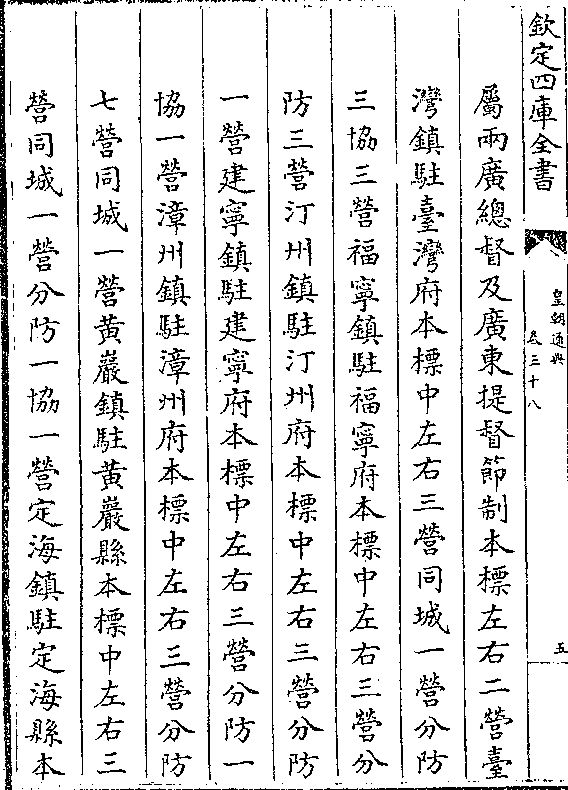 欽定四庫全書
皇朝通典
卷三十八
五
屬兩廣總督及廣東提督節制本標左右二營臺
灣鎮駐臺灣府本標中左右三營同城一營分防
三協三營福寧鎮駐福寧府本標中左右三營分
防三營汀州鎮駐汀州府本標中左右三營分防
一營建寧鎮駐建寧府本標中左右三營分防一
協一營漳州鎮駐漳州府本標中左右三營分防
七營同城一營黃巖鎮駐黃巖縣本標中左右三
營同城一營分防一協一營定海鎮駐定海縣本